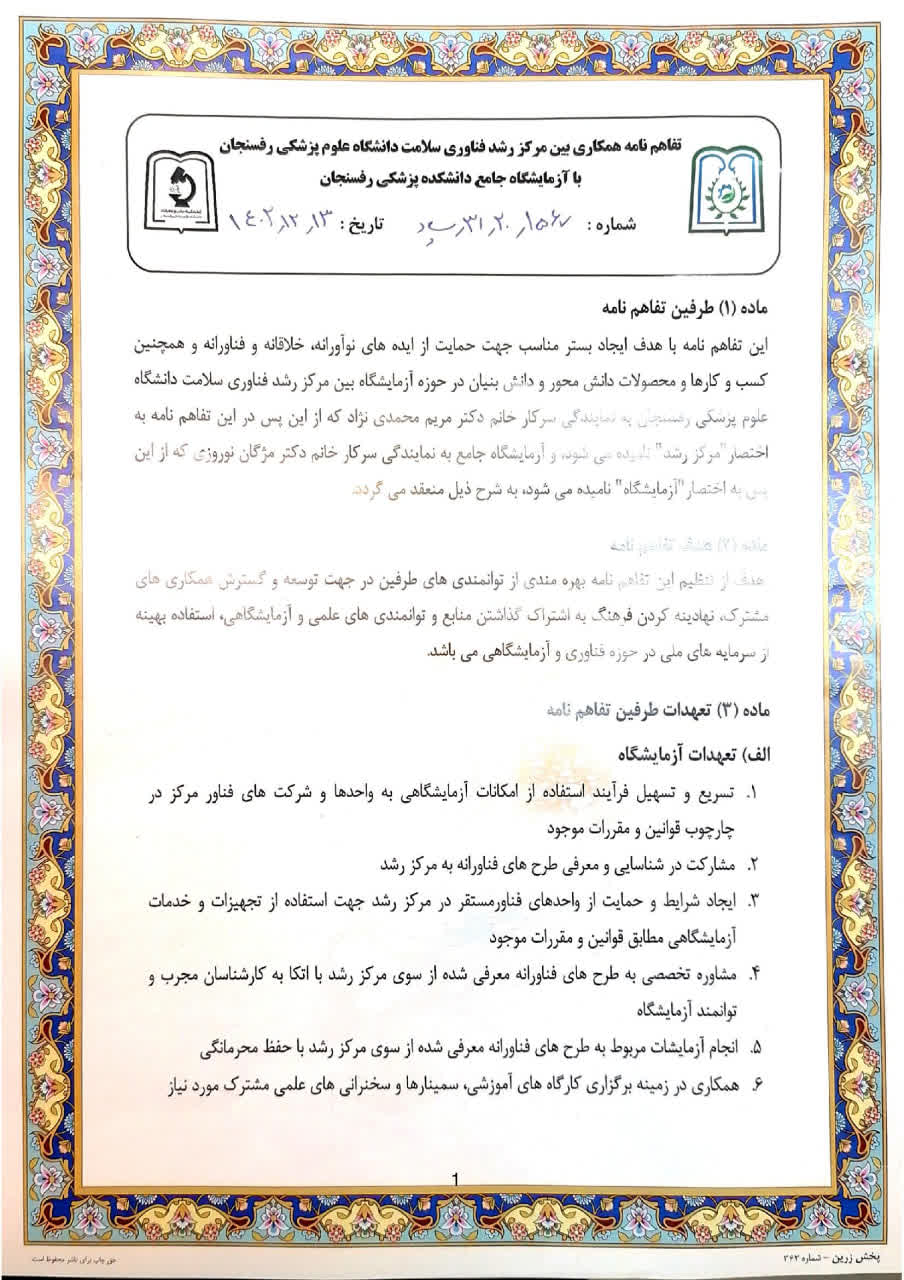 تفاهم نامه همکاری بین مرکز رشد فناوری سلامت دانشگاه علوم پزشکی رفسنجان
با آزمایشگاه جامع دانشکده پزشکی رفسنجان
شماره : تاریخ : ۱۴۰۲/۱۲/۱۳
ماده (۱) طرفین تفاهم نامه
این تفاهم نامه با هدف ایجاد بستر مناسب جهت حمایت از ایده های نوآورانه، خلاقانه و فناورانه و همچنین
کسب و کارها و محصولات دانش محور و دانش بنیان در حوزه آزمایشگاه بین مرکز رشد فناوری سلامت دانشگاه
علوم پزشکی رفسنجان به نمایندگی سرکار خانم دکتر مریم محمدی نژاد که از این پس در این تفاهم نامه به
اختصار"مرکز رشد" نامیده می شود، و آزمایشگاه جامع به نمایندگی سرکار خانم دکتر مژگان نوروزی که از این
پس به اختصار"آزمایشگاه" نامیده می شود، به شرح ذیل منعقد می گردد.
ماده (۲) هدف تفاهم نامه
هدف از تنظیم این تفاهم نامه بهره مندی از توانمندی های طرفین در جهت توسعه و گسترش همکاری های
مشترک، نهادینه کردن فرهنگ به اشتراک گذاشتن منابع و توانمندی های علمی و آزمایشگاهی، استفاده بهینه
از سرمایه های ملی در حوزه فناوری و آزمایشگاهی می باشد.
ماده (۳) تعهدات طرفین تفاهم نامه
الف) تعهدات آزمایشگاه
۱. تسریع و تسهیل فرآیند استفاده از امکانات آزمایشگاهی به واحدها و شرکت های فناور مرکز در
چارچوب قوانین و مقررات موجود
۲. مشارکت در شناسایی و معرفی طرح های فناورانه به مرکز رشد
۳. ایجاد شرایط و حمایت از واحدهای فناورمستقر در مرکز رشد جهت استفاده از تجهیزات و خدمات
آزمایشگاهی مطابق قوانین و مقررات موجود
۴. مشاوره تخصصی به طرح های فناورانه معرفی شده از سوی مرکز رشد با اتکا به کارشناسان مجرب و
توانمند آزمایشگاه
۵. انجام آزمایشات مربوط به طرح های فناورانه معرفی شده از سوی مرکز رشد با حفظ محرمانگی
۶. همکاری در زمینه برگزاری کارگاه های آموزشی، سمینارها و سخنرانی های علمی مشترک مورد نیاز
1
پخش زرین - شماره ۳۶۳
حق چاپ برای ناشر محفوظ است